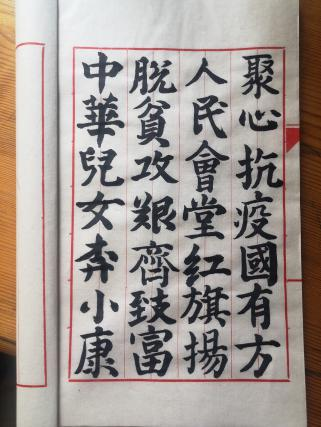 聚心抗疫國有方
人民會堂紅旗揚
脱貧攻艱齊致富
中華兒女奔小康